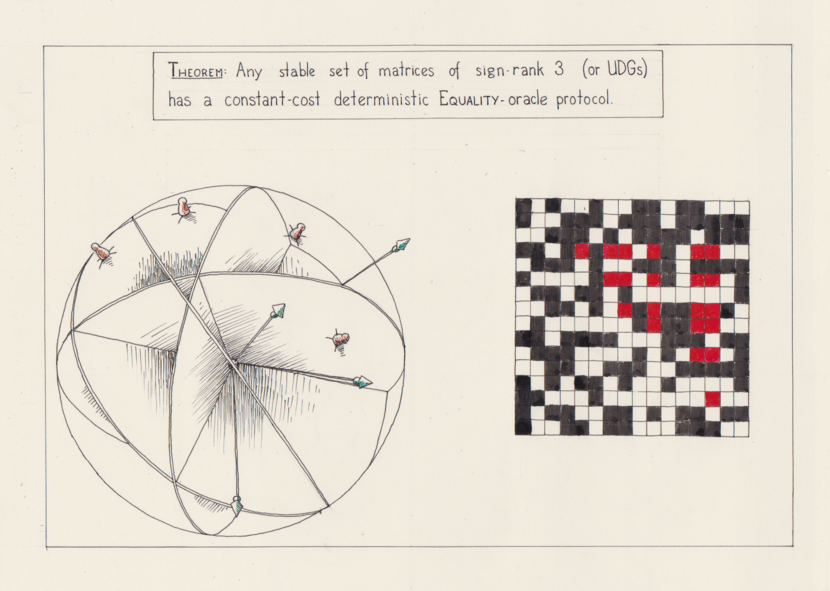 THEOREM: Any stable set of matrices of sign-rank 3 (or UDGs)
has a constant-cost deterministic EQUALITY-oracle protocol.